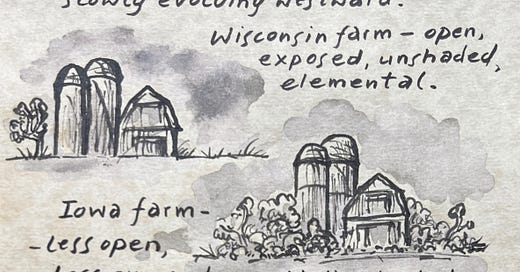 slowly evolving westward.
Wisconsin farm – open,
exposed, unshaded,
elemental.
Iowa farm–
–less open,